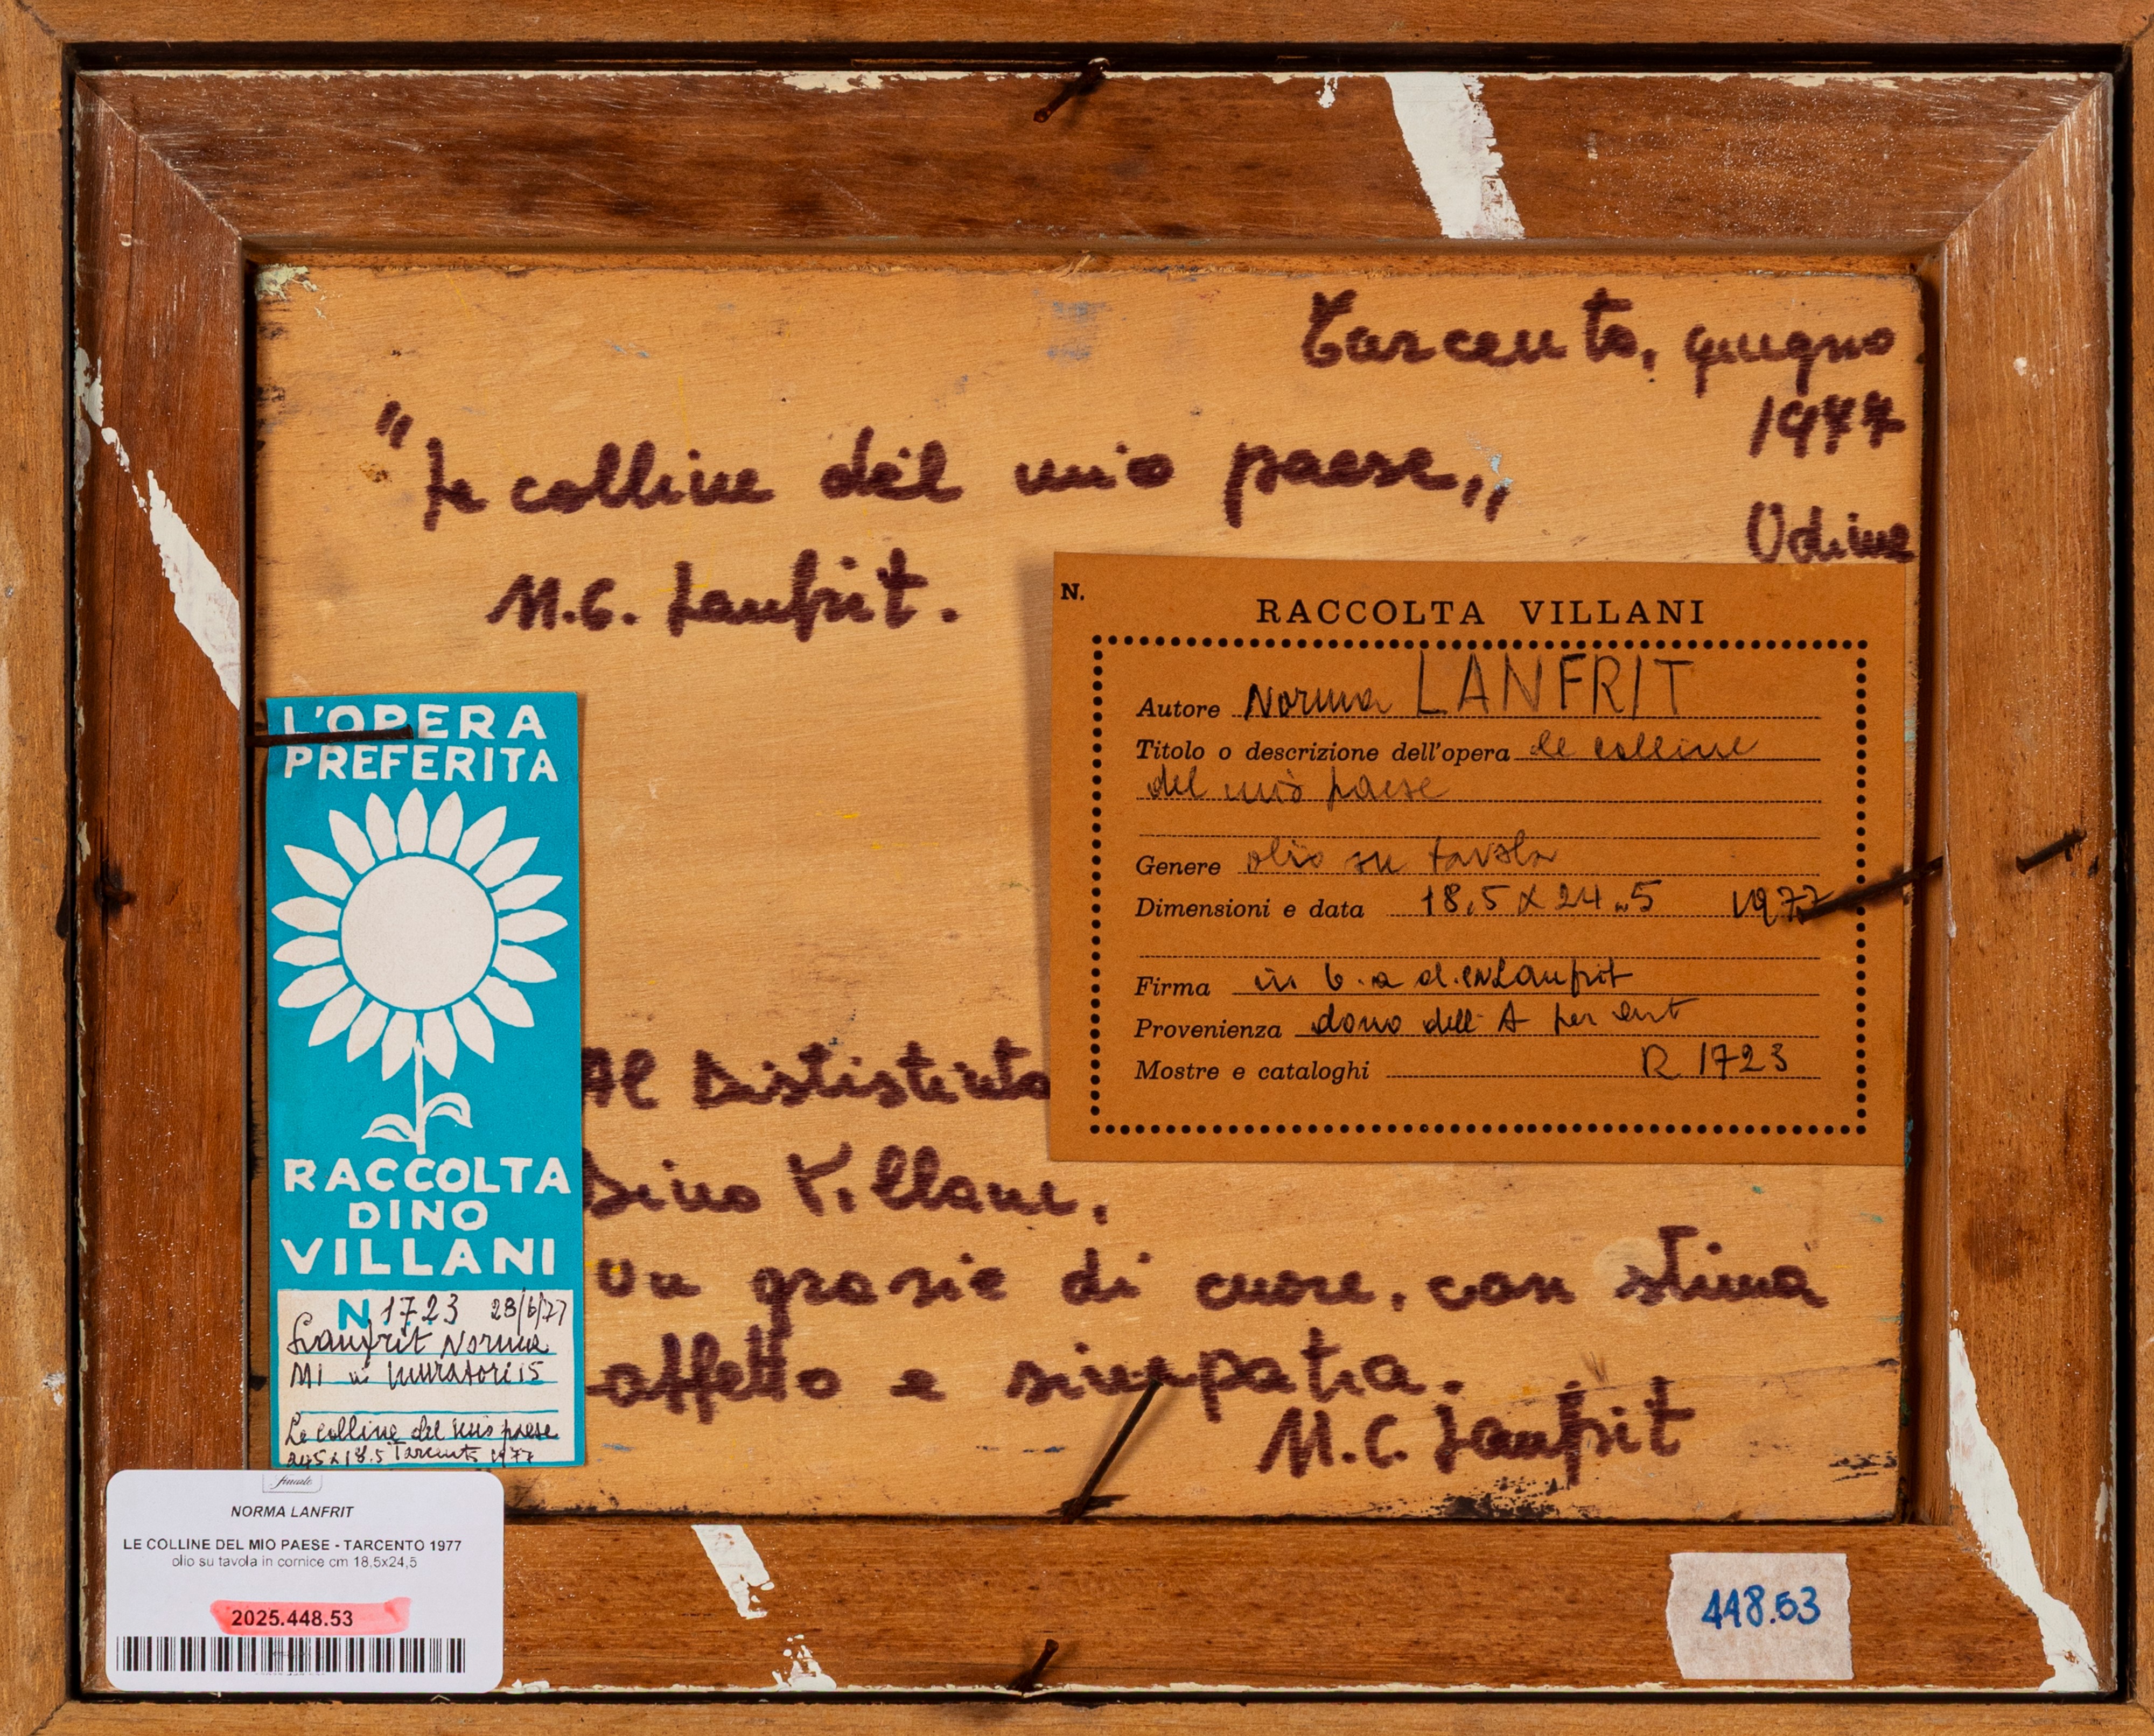 Tarcento, giugno
1977
Udine
"Le colline del mio paese„
M.C. Lanfrit.
N.
RACCOLTA VILLANI
Autore Norma LANFRIT
Titolo o descrizione dell'opera le colline
del mio paese
Genere olio su tavola
Dimensioni e data 18,5 x 24,5 1977
Firma in b. a d. Lanfrit
Provenienza dono dell'A per
Mostre e cataloghi R 1723
L'OPERA
PREFERITA
RACCOLTA
DINO
VILLANI
N 1723 28/6/77
Lanfrit Norma
MI Muratori 15
Le colline del mio paese
24,5 x 18.5 Tarcento 1977
Al Dististinto
Dino Villani,
Un grazie di cuore, con stima
affetto e simpatia.
M.C. Lanfrit
finarte
NORMA LANFRIT
LE COLLINE DEL MIO PAESE - TARCENTO 1977
olio su tavola in cornice cm 18,5x24,5
2025.448.53
448.53